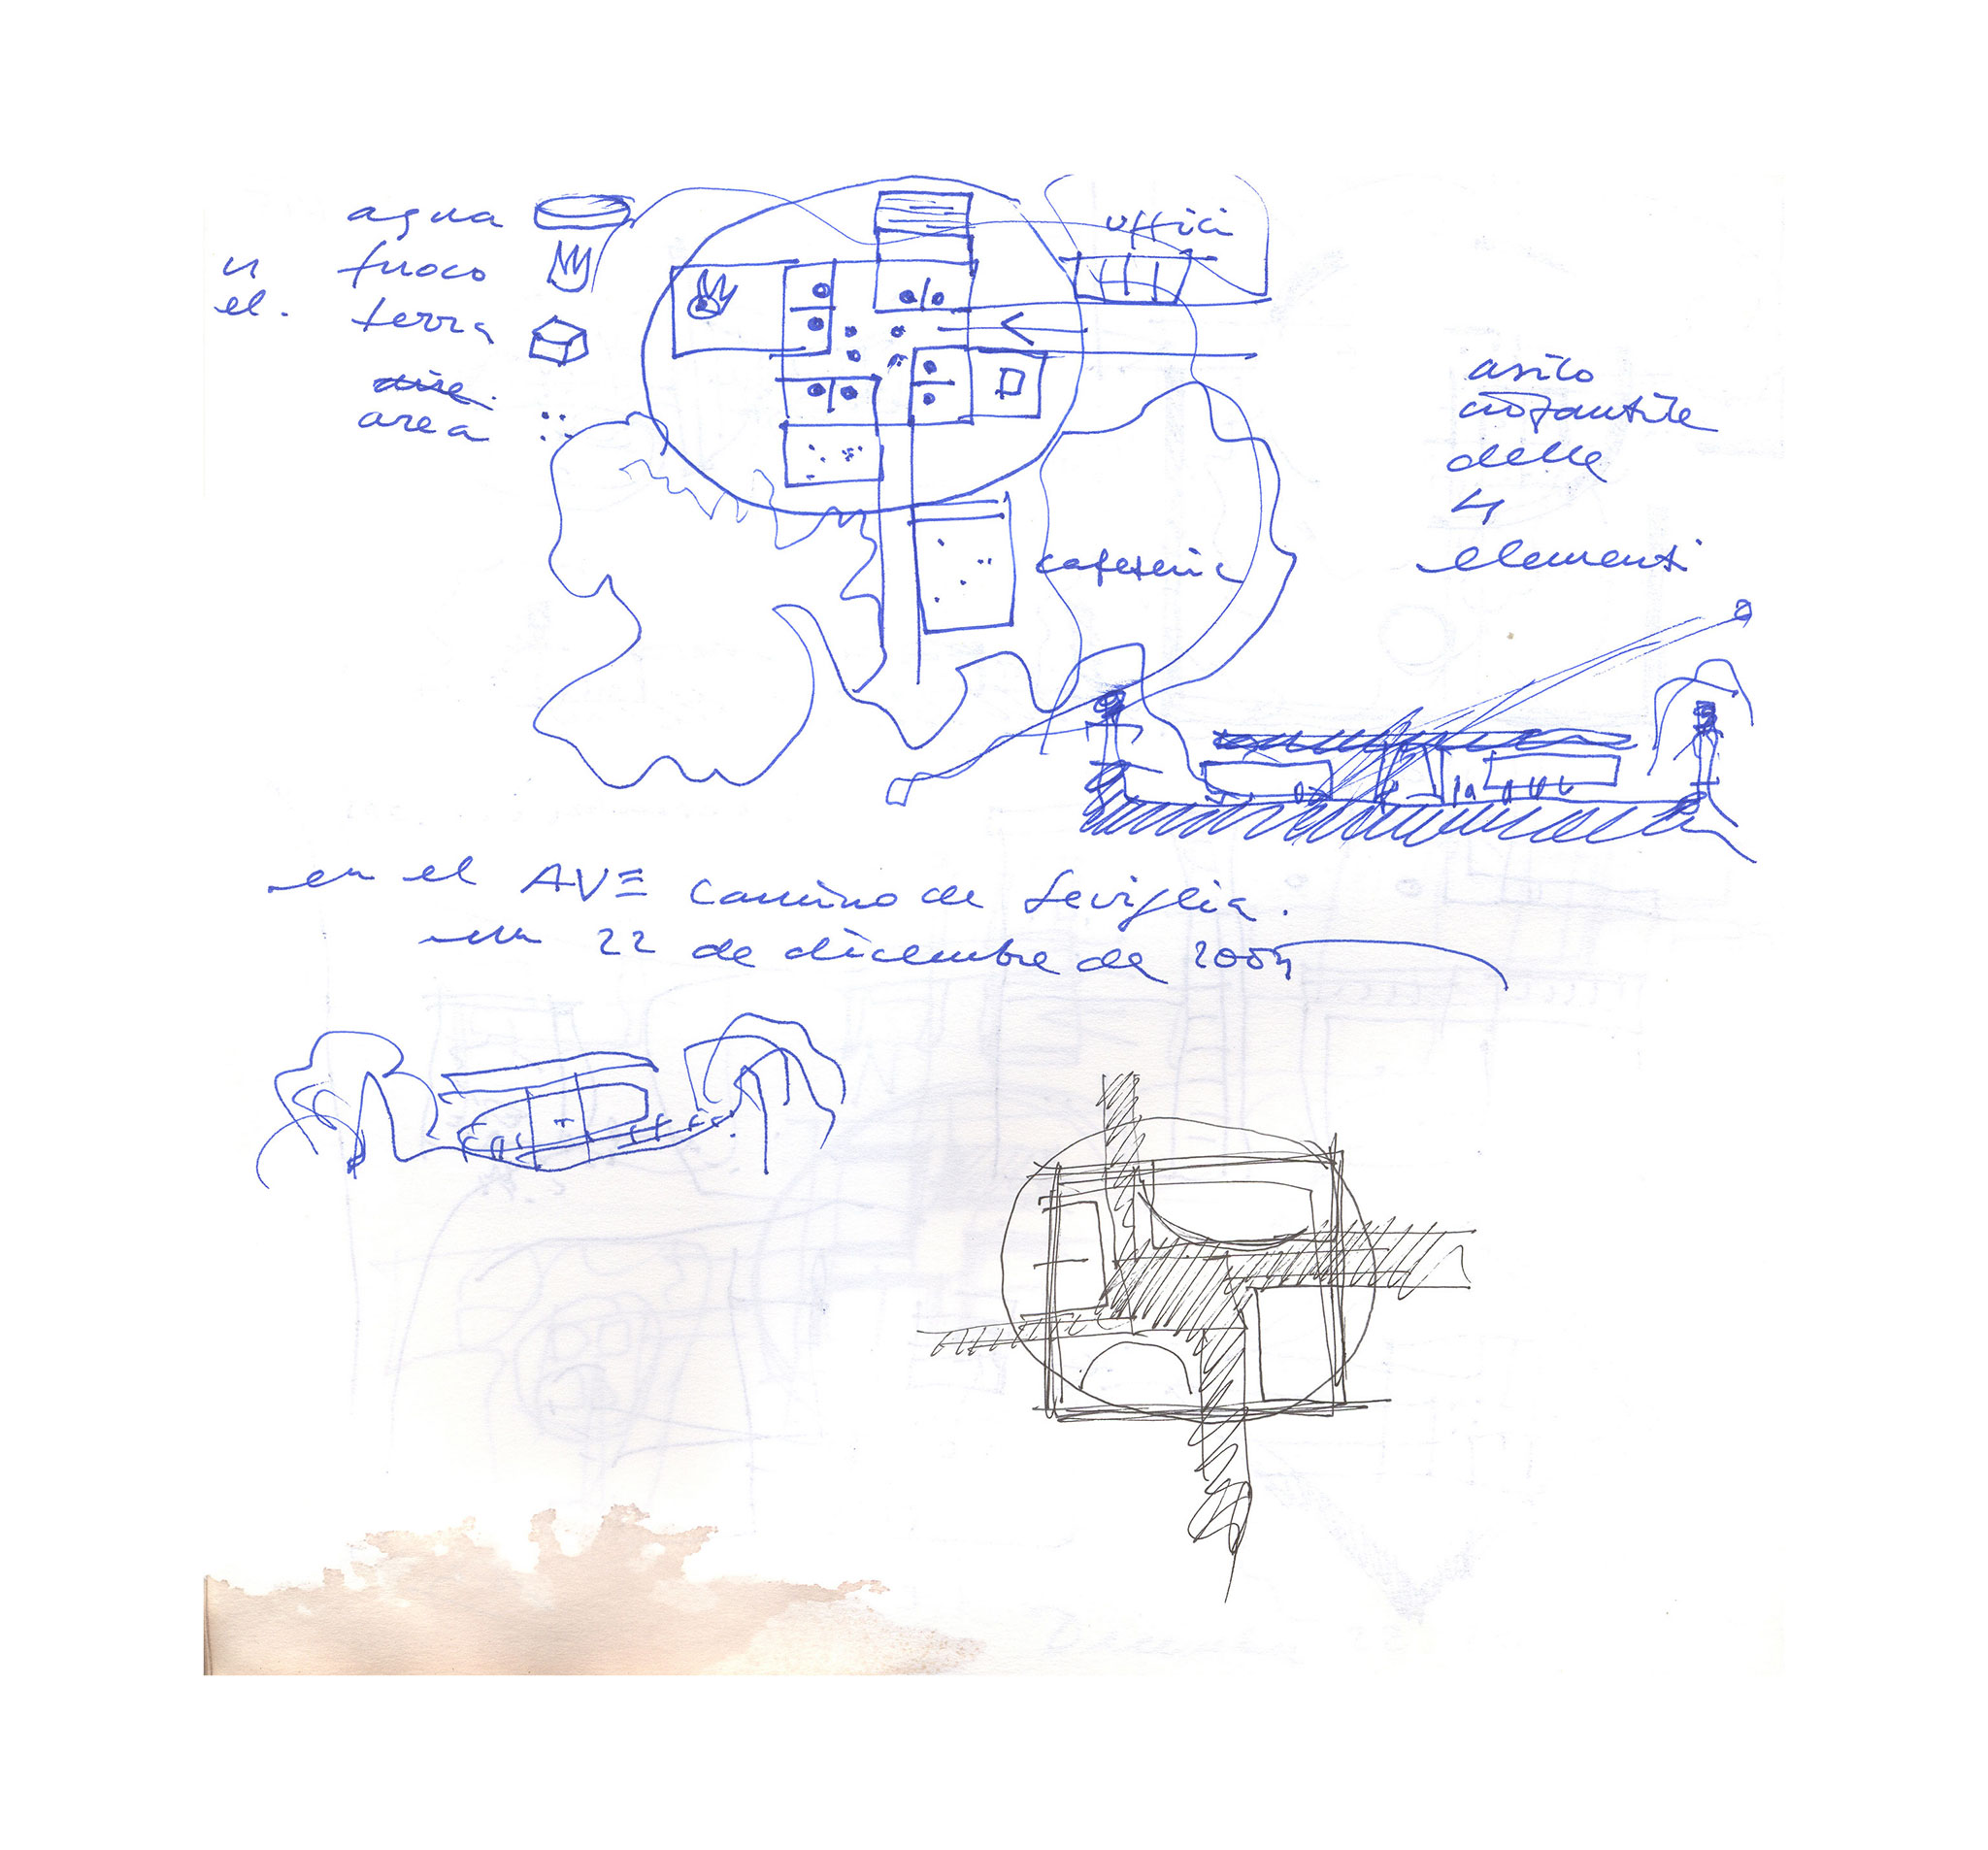 agua
fuoco
el. terra
area
uffici
asilo
infantile
delle
4
elementi
cafeteria
en el AVE camino de Seviglia.
22 de dicembre de 2004